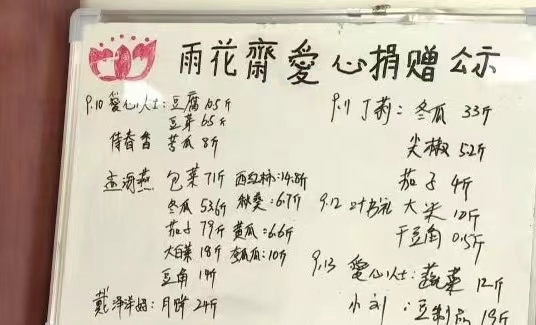 雨花齋愛心捐赠公示
9.10 愛心人士：豆腐65斤
豆芽65斤
侍春香 苦瓜8斤
孟海燕 包菜71斤 西红柿:14.8斤
冬瓜53.6斤 秋葵:6.7斤
茄子79斤 黄瓜:6.6斤
大白菜18斤 瓜:10斤
豆角19斤
戴洋洋妈:月饼24斤
9.11 丁莉：冬瓜 33斤
尖椒 52斤
茄子 4斤
9.12 叶书沅 大米 10斤
干豆角 0.5斤
9.13 愛心人士:蔬菜 12斤
小刘：豆制品 19斤